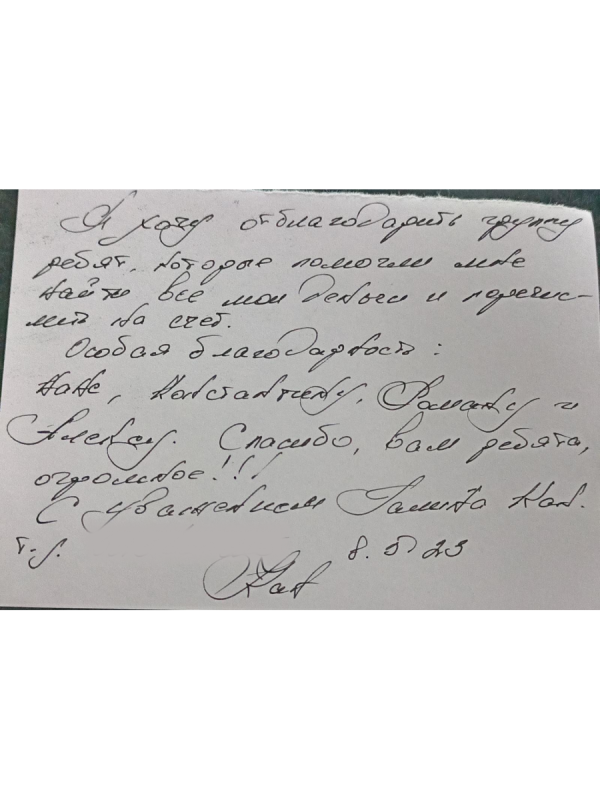 Я хочу отблагодарить группу
ребят, которые помогли мне
найти все мои деньги и перечис-
лить на счет.
Особая благодарность:
Константину, Роману и
Алексу. Спасибо, вам ребята,
огромное!!!
С уважением Галина Кан.
8. 5 23
Кан